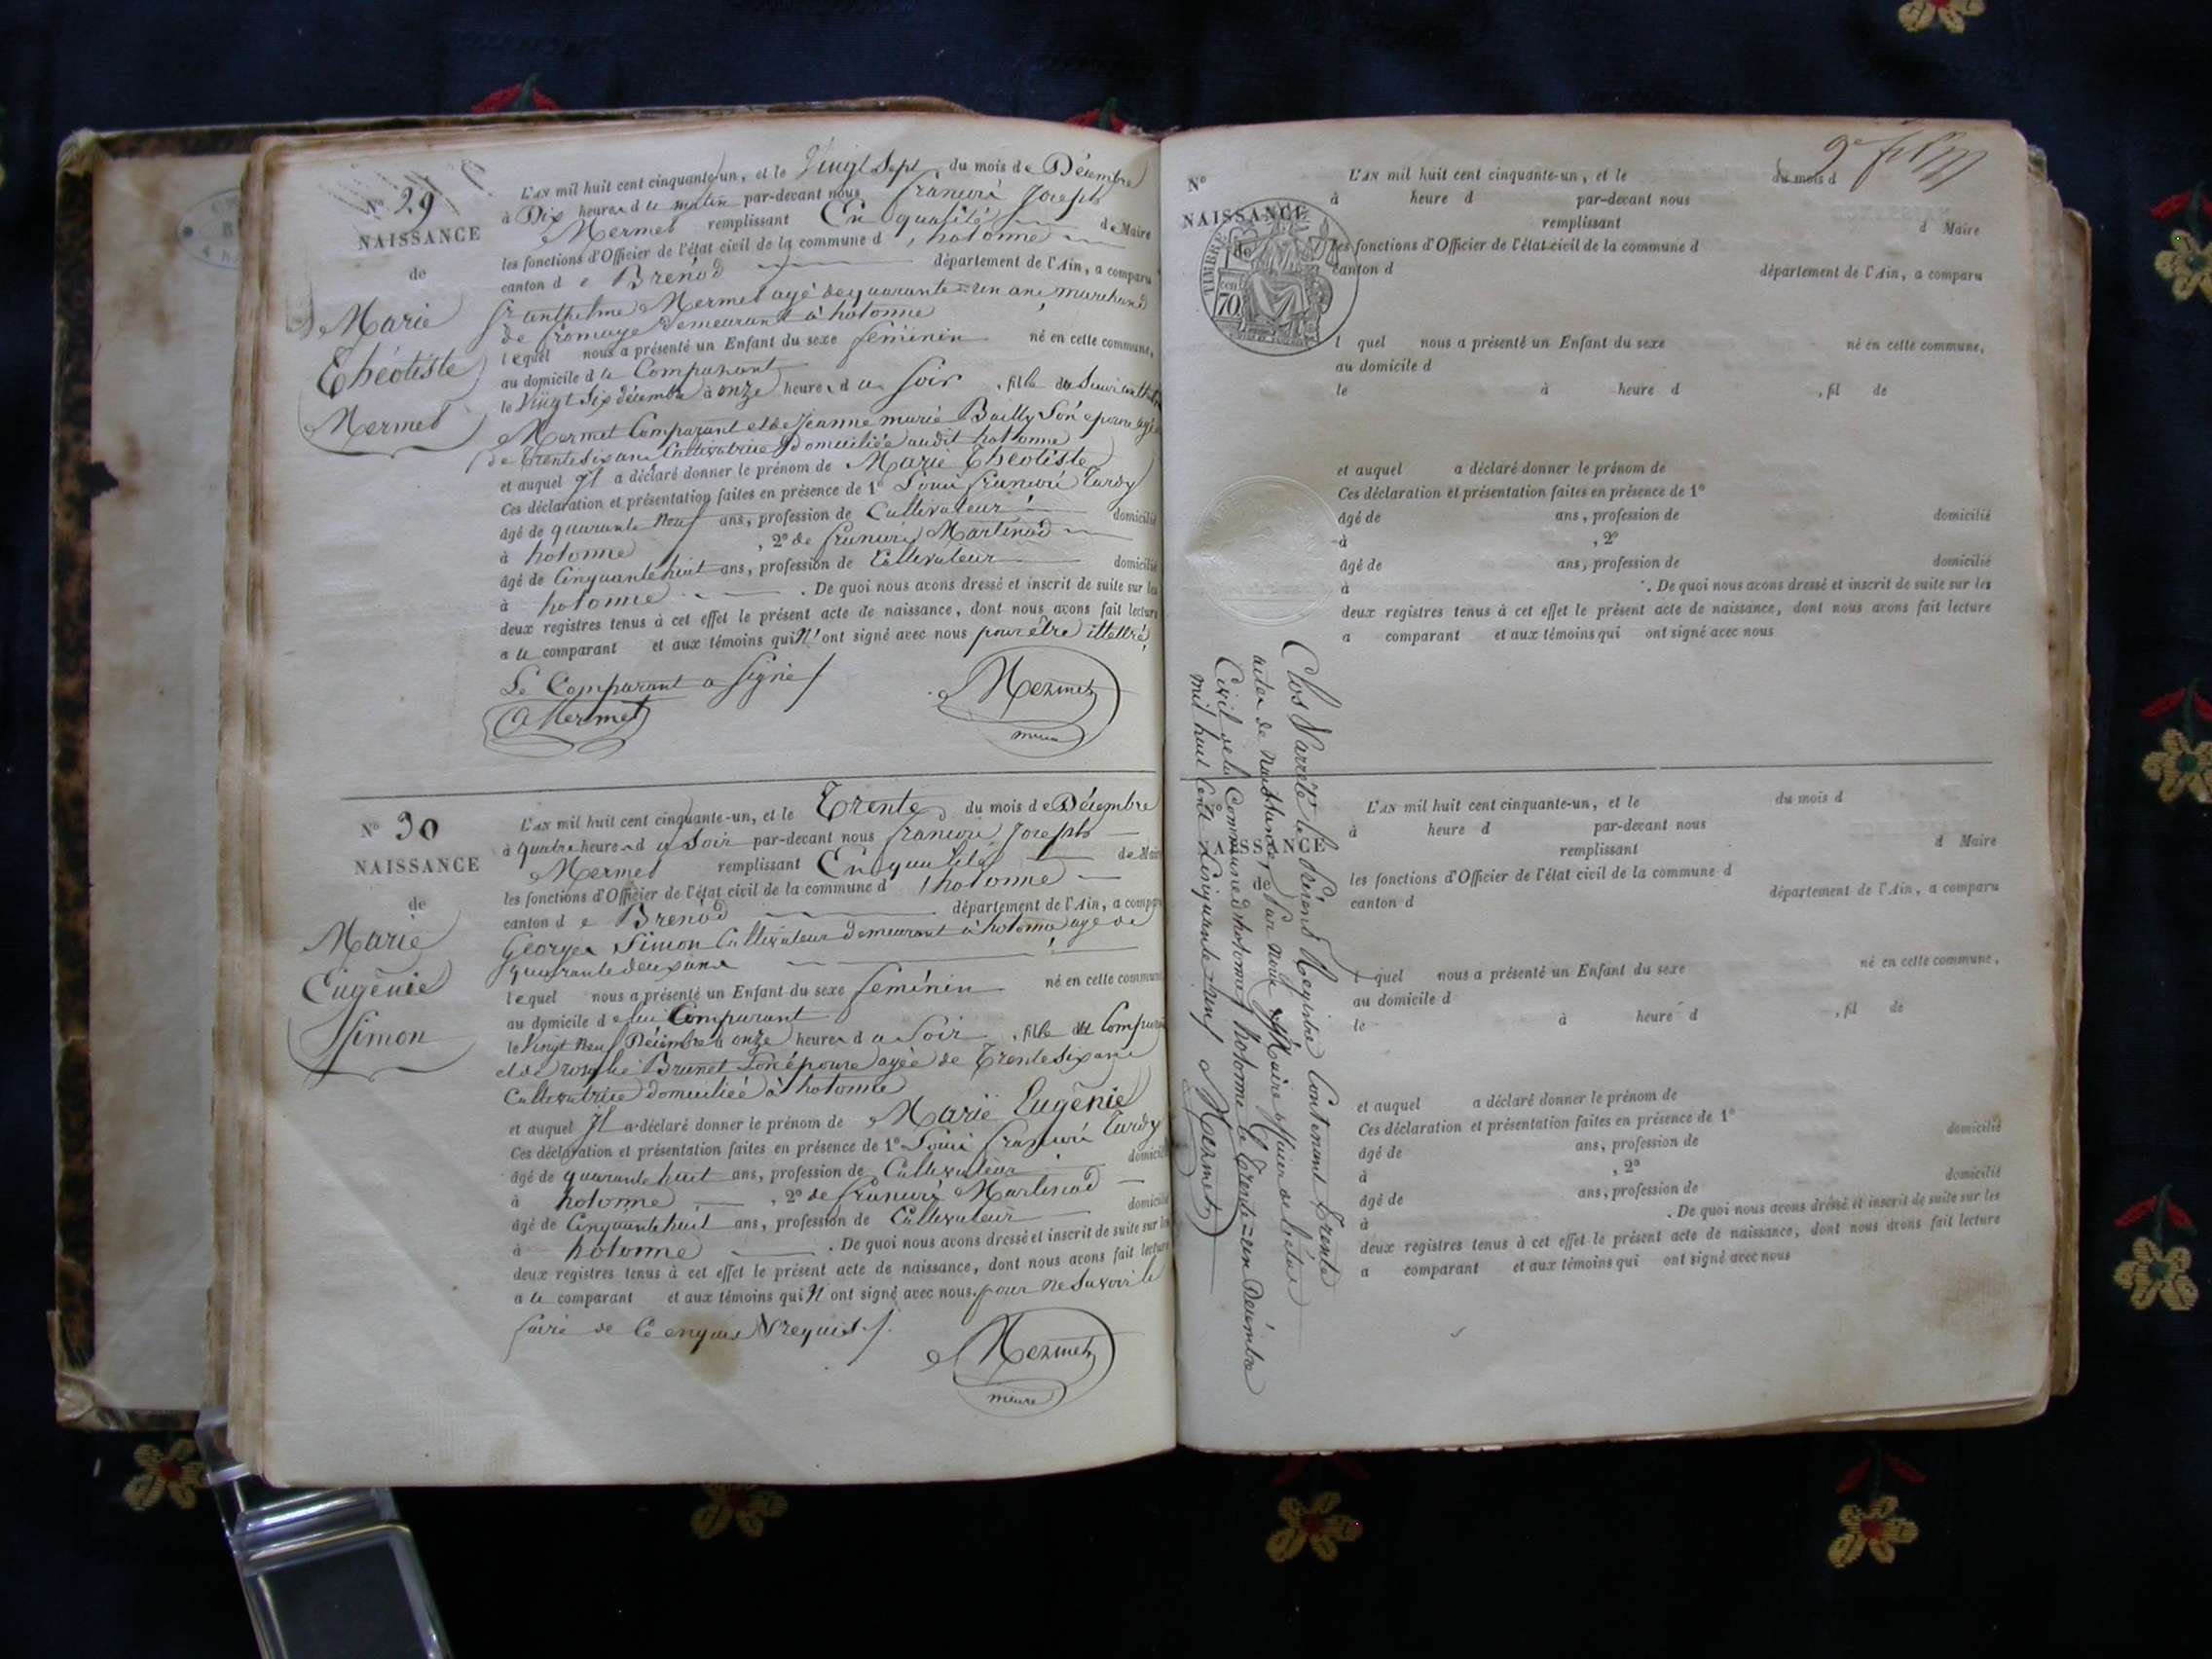 N° 29
NAISSANCE
de
Marie
Théotiste
Mermet
L'AN mil huit cent cinquante-un, et le Vingt Sept du mois de Décembre
à Dix heures du matin par-devant nous françois Joseph
Mermet remplissant En qualité de Maire
les fonctions d'Officier de l'état civil de la commune d'hotonne
canton de Brénod département de l'Ain, a comparu
anthelme Mermet agé de quarante=un ans marchand
de fromage demeurant à hotonne
lequel nous a présenté un Enfant du sexe féminin né en cette commune,
au domicile du Comparant
le Vingt Six décembre à onze heures du soir, fille du
Mermet Comparant et de Jeanne marie Bailly Son épouse agée
de Trente Six ans Cultivatrice domiciliée audit hotonne
et auquel Il a déclaré donner le prénom de Marie Théotiste
Ces déclaration et présentation faites en présence de 1° Louis françois Tardy
âgé de quarante Neuf ans, profession de Cultivateur domicilié
à hotonne, 2° de françois Martinod
âgé de Cinquante huit ans, profession de Cultivateur domicilié
à hotonne. De quoi nous avons dressé et inscrit de suite sur les
deux registres tenus à cet effet le présent acte de naissance, dont nous avons fait lecture
a le comparant et aux témoins qui N'ont signé avec nous pour être illettré,
Le Comparant a signé
A Mermet Mermet
maire
N° 30
NAISSANCE
de
Marie
Eugénie
Simon
L'AN mil huit cent cinquante-un, et le Trente du mois de Décembre
à quatre heures du Soir par-devant nous françois Joseph
Mermet remplissant En qualité de Maire
les fonctions d'Officier de l'état civil de la commune d'hotonne
canton de Brénod département de l'Ain, a comparu
Georges Simon Cultivateur demeurant à hotonne agé de
quarante deux ans
lequel nous a présenté un Enfant du sexe féminin né en cette commune
au domicile de lui Comparant
le Vingt Neuf Décembre à onze heures du Soir, fille du Comparant
et de rosalie Brunet Son épouse agée de Trente Six ans
Cultivatrice domiciliée à hotonne
et auquel Il a déclaré donner le prénom de Marie Eugénie
Ces déclaration et présentation faites en présence de 1° Louis françois Tardy
âgé de quarante huit ans, profession de Cultivateur domicilié
à hotonne, 2° de françois Martinod
âgé de Cinquante huit ans, profession de Cultivateur domicilié
à hotonne. De quoi nous avons dressé et inscrit de suite sur les
deux registres tenus à cet effet le présent acte de naissance, dont nous avons fait lecture
a le comparant et aux témoins qui N'ont signé avec nous. pour ne Savoir le
faire de Ce enquis & requis
Mermet
maire
2e film
N°
NAISSANCE
de
TIMBRE
70
L'AN mil huit cent cinquante-un, et le du mois d
à heure d par-devant nous
remplissant d Maire
les fonctions d'Officier de l'état civil de la commune d
canton d département de l'Ain, a comparu
l quel nous a présenté un Enfant du sexe né en cette commune,
au domicile d
le à heure d , fil de
et auquel a déclaré donner le prénom de
Ces déclaration et présentation faites en présence de 1°
âgé de ans, profession de domicilié
à , 2°
âgé de ans, profession de domicilié
à . De quoi nous avons dressé et inscrit de suite sur les
deux registres tenus à cet effet le présent acte de naissance, dont nous avons fait lecture
a comparant et aux témoins qui ont signé avec nous
Clos & arreté le Présent Registre Contenant Trente
actes de Naissances Par Nous Maire officier de l'état
Civil de la Commune d'hotonne, hotonne le Trente=un Décembre
mil huit Cent Cinquante=un Mermet
NAISSANCE
de
L'AN mil huit cent cinquante-un, et le du mois d
à heure d par-devant nous
remplissant d Maire
les fonctions d'Officier de l'état civil de la commune d
canton d département de l'Ain, a comparu
l quel nous a présenté un Enfant du sexe né en cette commune,
au domicile d
le à heure d , fil de
et auquel a déclaré donner le prénom de
Ces déclaration et présentation faites en présence de 1°
âgé de ans, profession de domicilié
à , 2°
âgé de ans, profession de domicilié
à . De quoi nous avons dressé et inscrit de suite sur les
deux registres tenus à cet effet le présent acte de naissance, dont nous avons fait lecture
a comparant et aux témoins qui ont signé avec nous